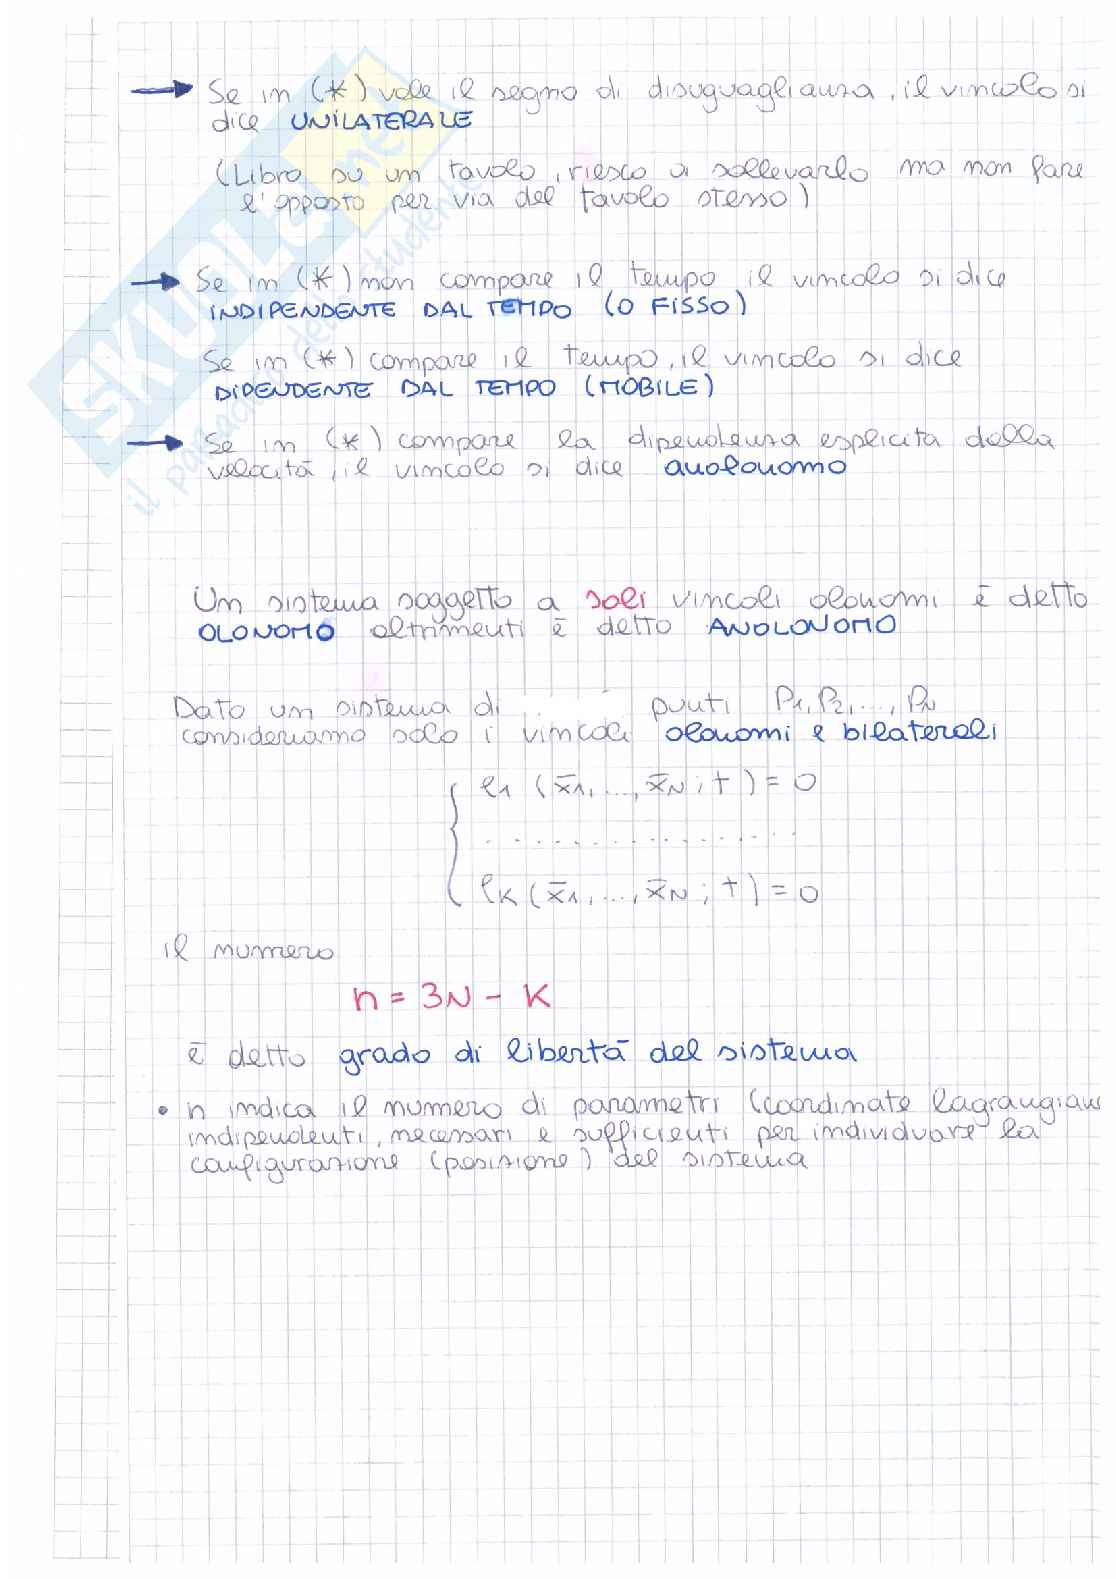 → Se in (*) vale il segno di disuguaglianza, il vincolo si
dice UNILATERALE
(Libro su un tavolo, riesco a sollevarlo ma non fare
l'opposto per via del tavolo stesso)
→ Se in (*) non compare il tempo il vincolo si dice
INDIPENDENTE DAL TEMPO (O FISSO)
Se in (*) compare il tempo, il vincolo si dice
DIPENDENTE DAL TEMPO (MOBILE)
→ Se in (*) compare la dipendenza esplicita dalla
velocità, il vincolo si dice anolonomo
Un sistema soggetto a soli vincoli olonomi è detto
OLONOMO altrimenti è detto ANOLONOMO
Dato un sistema di punti P1, P2, ..., PN
consideriamo solo i vincoli olonomi e bilaterali
{ l1 (x̄1, ..., x̄N ; t) = 0
. . . . . . . . . . . . . . .
lK (x̄1, ..., x̄N ; t) = 0
il numero
n = 3N - K
è detto grado di libertà del sistema
• n indica il numero di parametri (coordinate lagrangiane
indipendenti, necessari e sufficienti per individuare la
configurazione (posizione) del sistema
SKUOLA.net
il paradiso dello studente